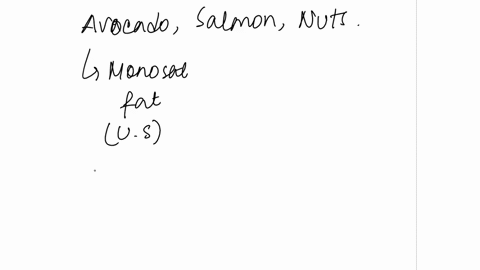 Avocado, Salmon, Nuts.
↳ Monosat
fat
(U.S)